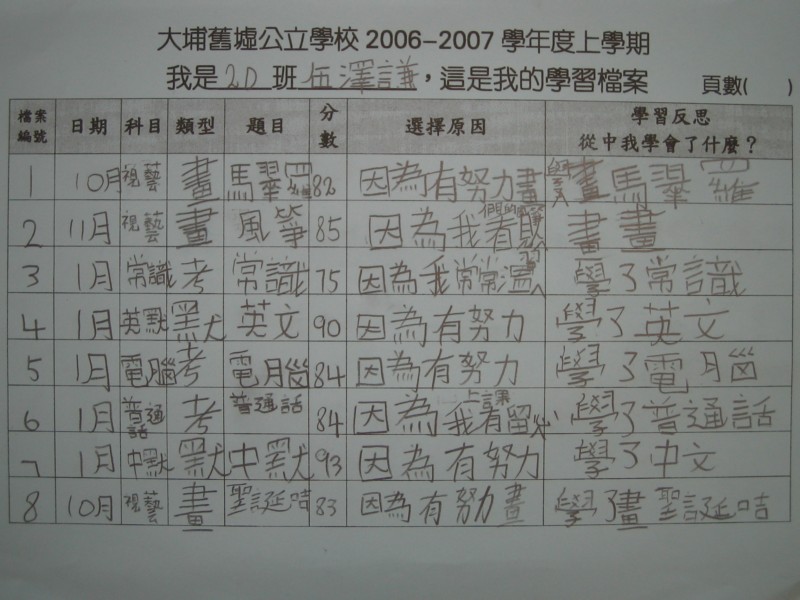 大埔舊墟公立學校 2006-2007 學年度上學期
我是 2D 班 伍澤謙，這是我的學習檔案 頁數( )
檔案編號 日期 科目 類型 題目 分數 選擇原因 學習反思 從中我學會了什麼？
1 10月 視藝 畫 馬罩 82 因為有努力畫 學了畫馬
2 11月 視藝 畫 風箏 85 因為我看 畫畫
3 1月 常識 考 常識 75 因為我常常溫習 學了常識
4 1月 英默 默 英文 90 因為有努力 學了英文
5 1月 電腦 考 電腦 84 因為有努力 學了電腦
6 1月 普通話 考 普通話 84 因為我上課有留心 學了普通話
7 1月 中默 默 中默 93 因為有努力 學了中文
8 10月 視藝 畫 聖誕咭 83 因為有努力畫 學了畫聖誕咭